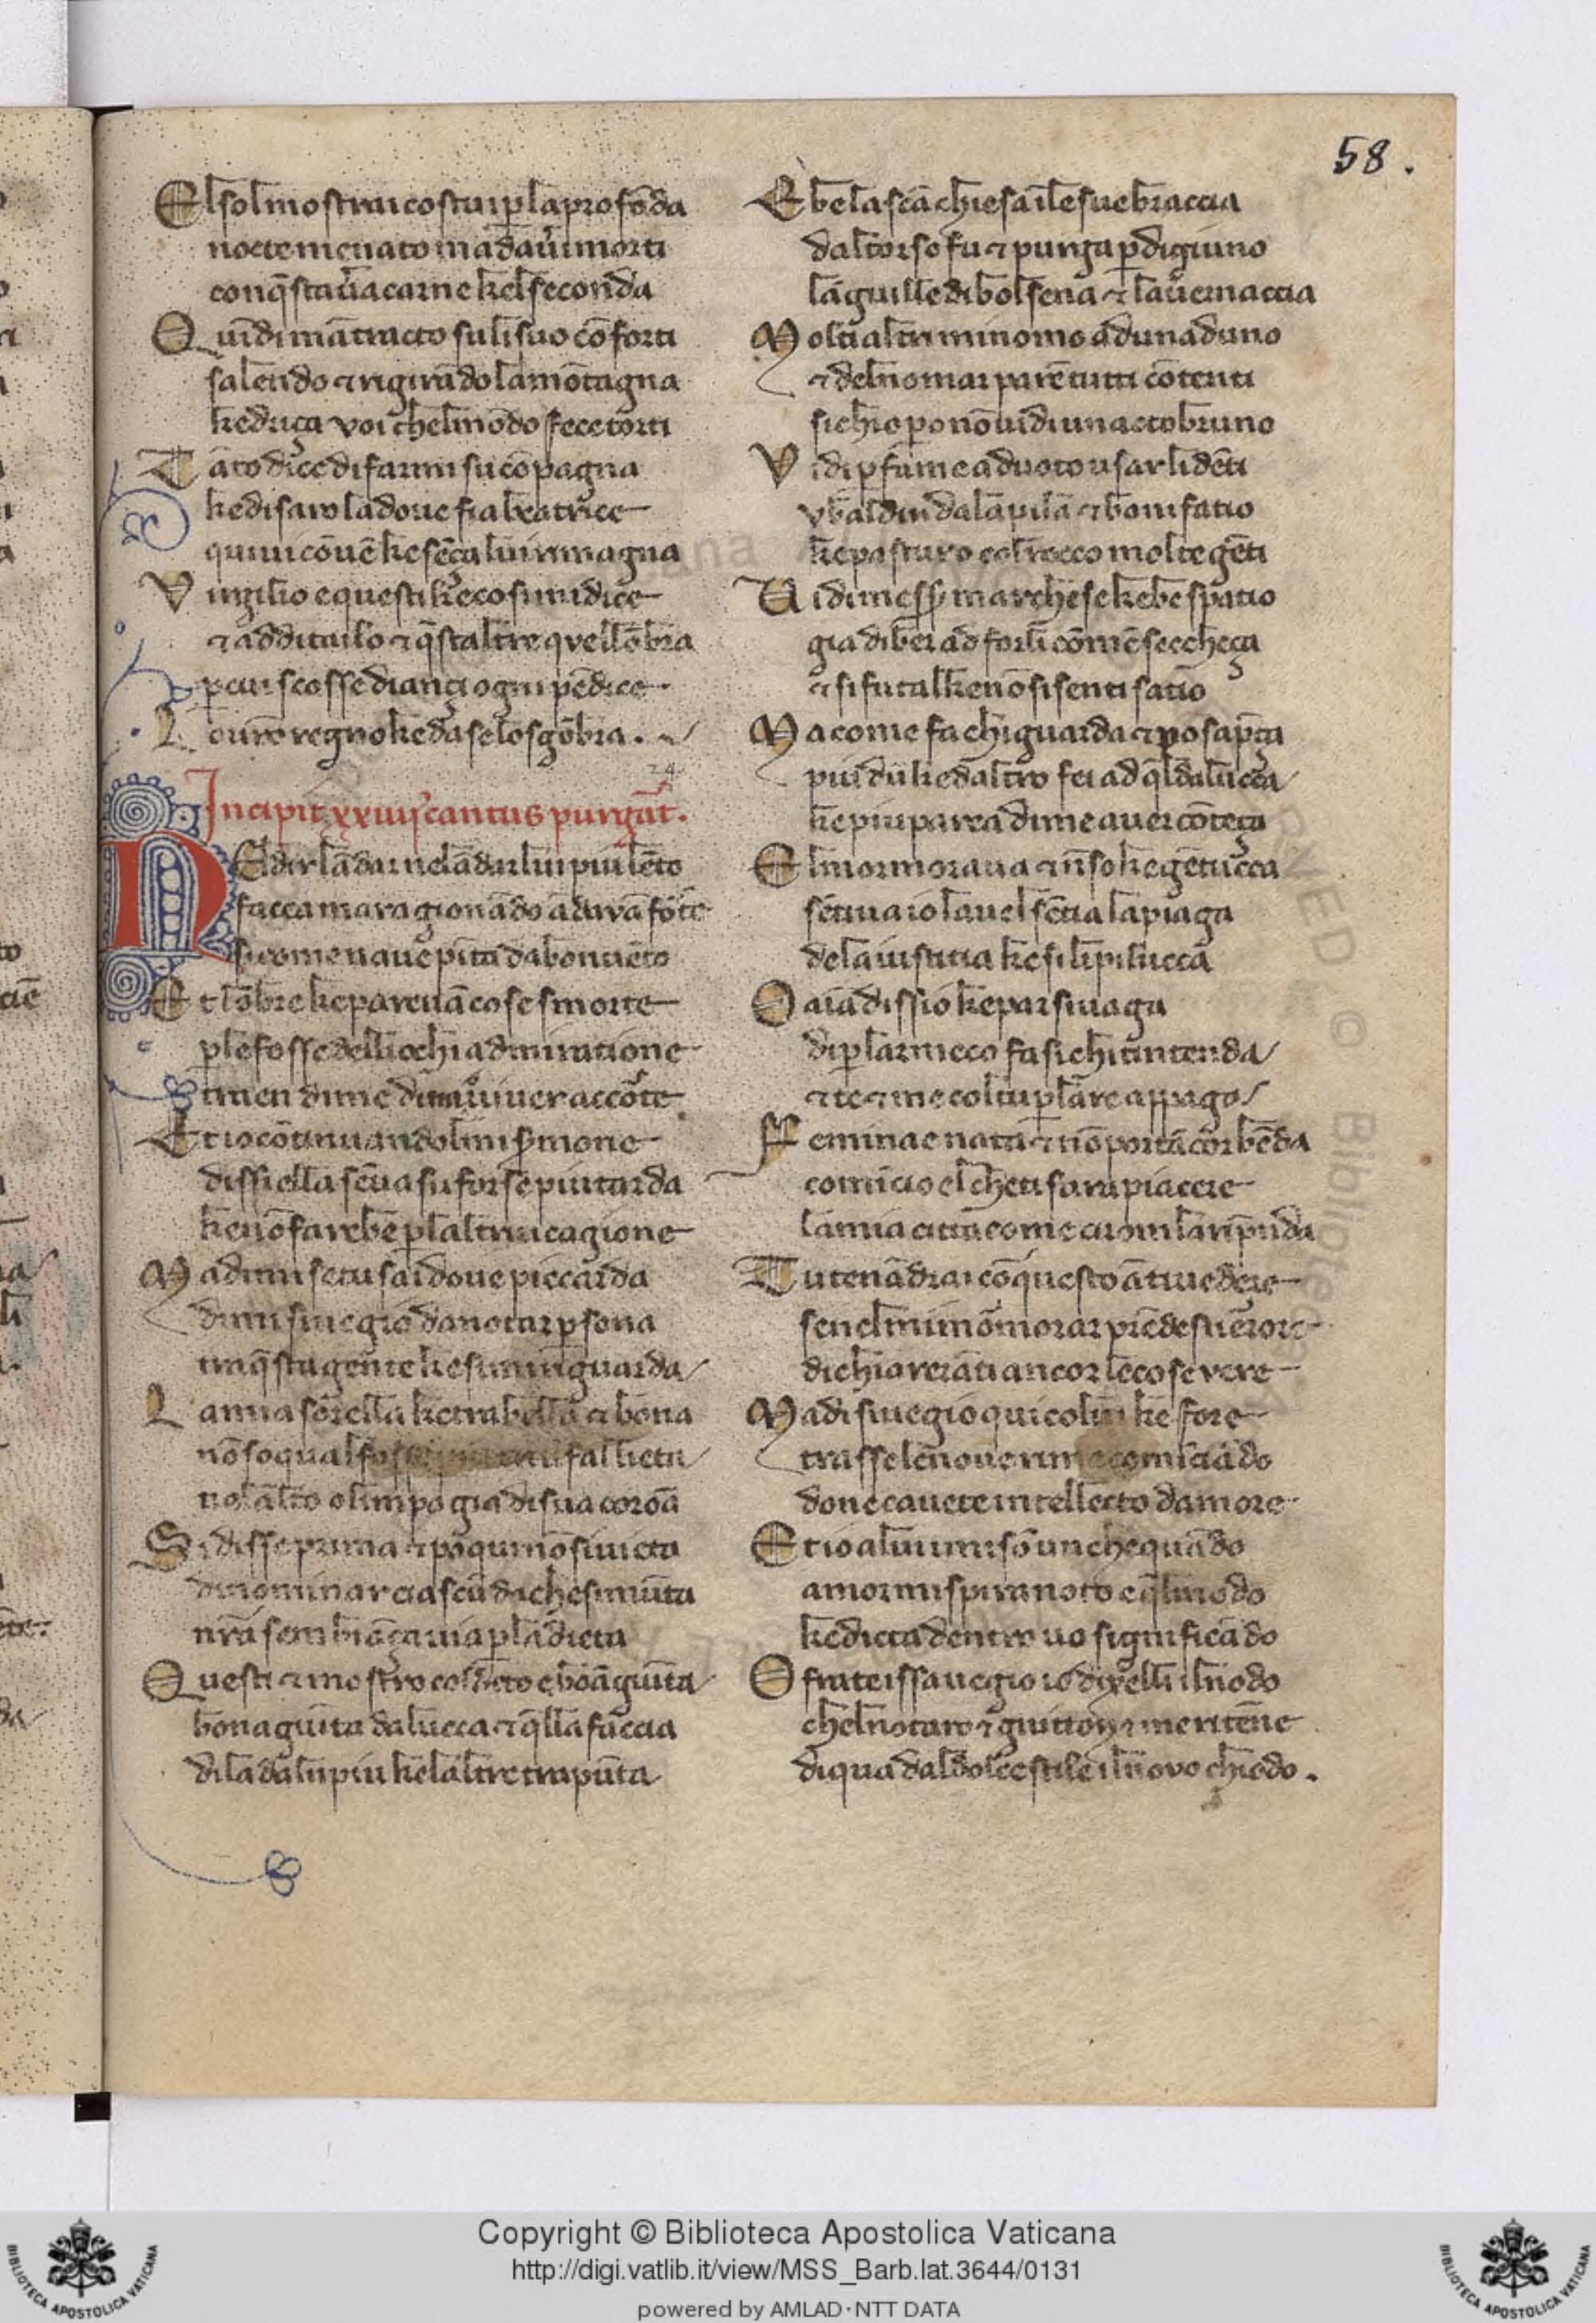 58.
El sol mostrai costui p la profōda
nocte menato mad da uʼi morti
con q̄sta uʼa carne kel seconda
Quīdi mā tracto su li suo cōforti
salendo ⁊ rigirādo la mōtagna
ke driça voi chel mōdo fece torti
Tāto dice di farmi su cōpagna
ke di saro la doue fia beatrice
quiui cōuē ke sēça lui rimagna
Virgilio e questi ke cosi mi dice
⁊ additailo ⁊ q̄staltre quellōbra
p cui scosse diançi ogni pēdice
Lo ur̄o regno ke da se lo sgōbra.
24
Incipit xxiiij cantus purgat̄.
NEl dir lādar ne lādar lui piu lēto
facea ma ragionādo ādauā forte
si come naue pīta da bon uēto
Et lōbre ke pareuā cose smorte
p le fosse delli ochi admiratione
traen di me di mio uiuer accorte
Et io cōtinuando lmi s̄mone
dissi ella sēua su forse piu tarda
ke nō farebe p laltrui cagione
Ma dimmi se tu sai doue piccarda
dimi sio uegio da notar p sona
tra q̄sta gente ke si mi riguarda
La mia sorella ke tra bella ⁊ bona
nō so qual fosse piu triūfal lieta
nelālto olimpo gia di sua coroā
Si disse prima ⁊ po qui nō si uieta
di nominar ciascū da che si mūta
nr̄a sembiāça uia p la dieta
Questi ⁊ mostro col dito e bōāgiūta
bonagiūta da lucca ⁊ q̄lla faccia
di la da lui piu ke laltre trapūta
Ebe la scā chiesa ī le sue braccia
dal torso fu ⁊ purga p digiuno
lāguille di bolsena ⁊ la uernaccia
Molti altri mi nomo ad un ad uno
⁊ del nomar parē tutti cōtenti
si chio po nō uidi un acto bruno
Vidi p fame a duoto usar li dēti
vbaldin da la pila ⁊ bonifatio
ke pasturo col rocco molte gēti
Vidi mess̄ marchese kebe spatio
gia di ber ad forli cō mē seccheça
⁊ si fu tal ke nō si senti satio
Ma come fa chi guarda ⁊ po sap̄ça
piu dū ke daltro fei ad q̄l da lucca
ke piu parea di me auer cōteça
El mormoraua ⁊ nō so ke gētucca
sētiua io la uel sētia la piaga
de la iustitia ke si li pilucca
O aīa dissio ke par si uaga
di p lar meco fa si chio tintenda
⁊ te ⁊ me col tu p lare appaga
Femina e nata ⁊ nō porta cor bēda
comīcio el che ti fara piacere
la mia citta come ciom la ripnda
Tu tenādrai cō questo ātiuedere
se nel mi mōmorar prēdesti errore
dichiarerāti ancor le cose vere
Ma di sio uegio qui colui ke fore
trasse le noue rime comīciādo
donne cauete intellecto damore
Et io a lui i mi sō un che quādo
amor mi spira noto e q̄l modo
ke dicta dentro uo significādo
O frate issa uegio io dixelli il nodo
chel notaro ⁊ guitton ⁊ me ritēne
di qua dal dolce stile il nouo chiodo.
Copyright © Biblioteca Apostolica Vaticana
http://digi.vatlib.it/view/MSS_Barb.lat.3644/0131
powered by AMLAD·NTT DATA
BIBLIOTECA APOSTOLICA VATICANA
BIBLIOTECA APOSTOLICA VATICANA